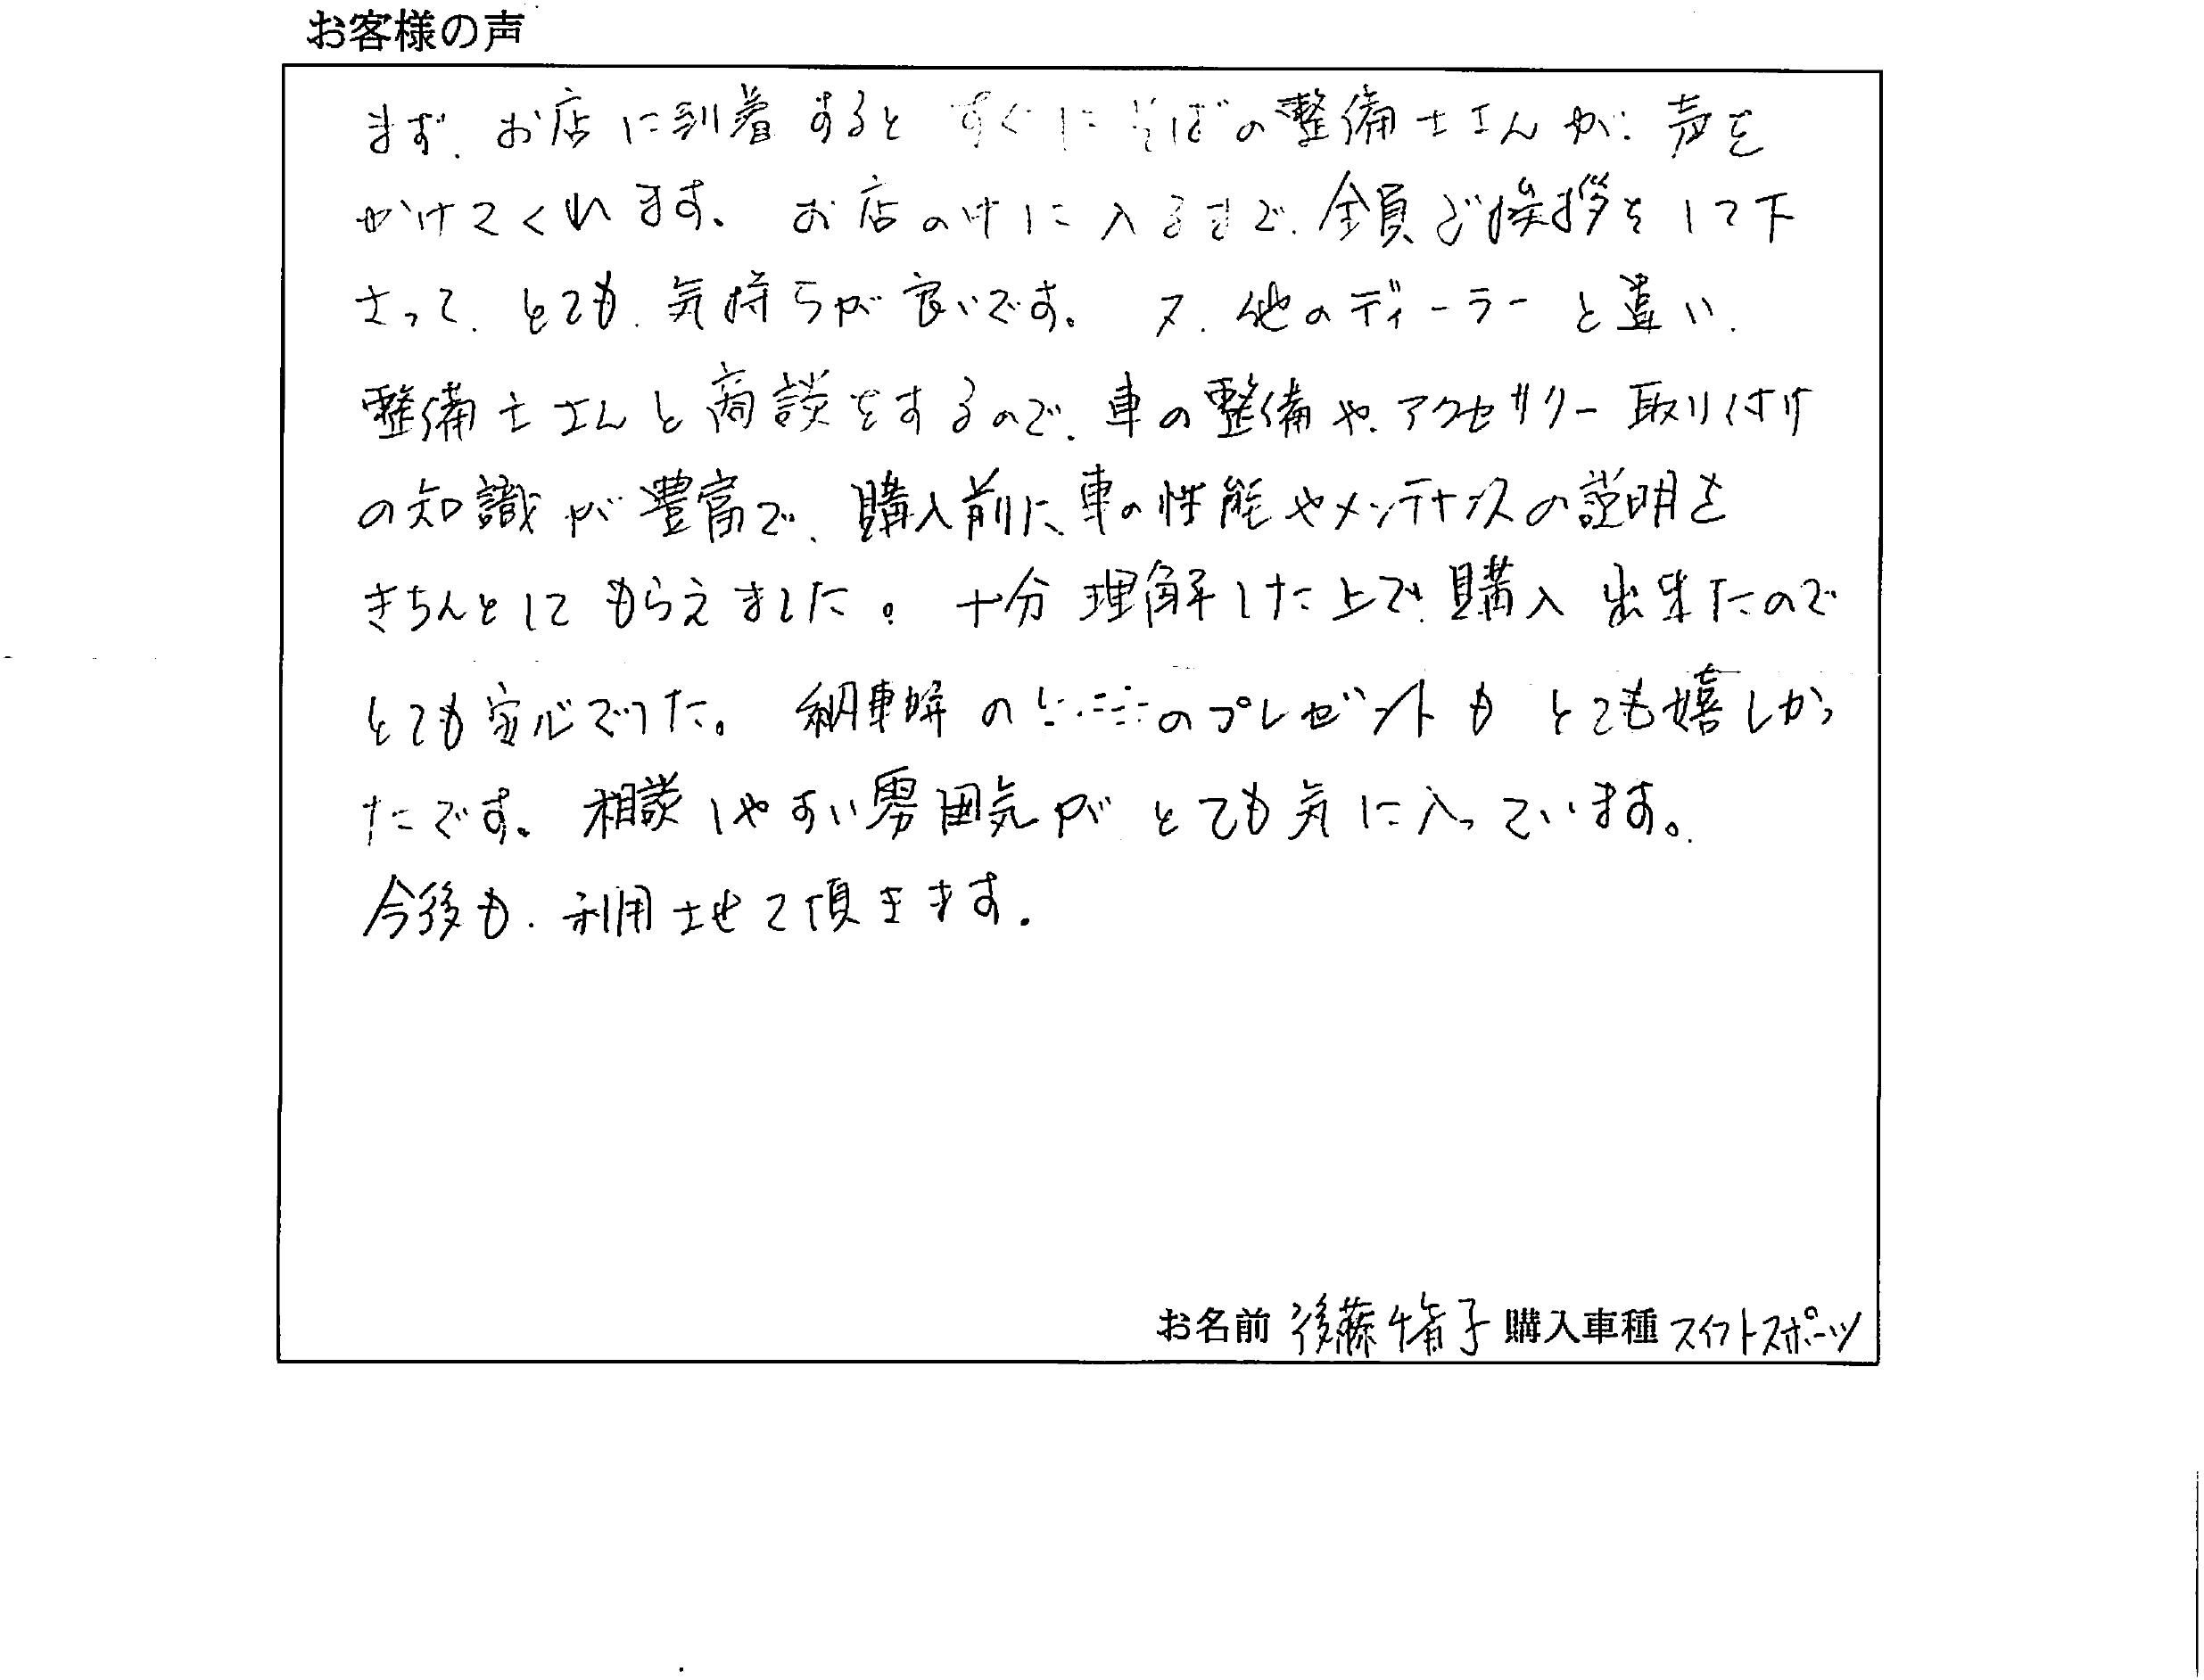 お客様の声
まず、お店に到着するとすぐにそばの整備士さんが、声を
かけてくれます。お店の中に入るまで、全員ご挨拶をして下
さって、とても、気持ちが良いです。又、他のディーラーと違い、
整備士さんと商談をするので、車の整備や、アクセサリー取り付け
の知識が豊富で、購入前に、車の性能やメンテナンスの説明を
きちんとしてもらえました。十分理解した上で、購入出来たので
とても安心でした。納車時ののプレゼントもとても嬉しかっ
たです。相談しやすい雰囲気がとても気に入っています。
今後も、利用させて頂きます。
お名前 後藤 子 購入車種 スイフトスポーツ